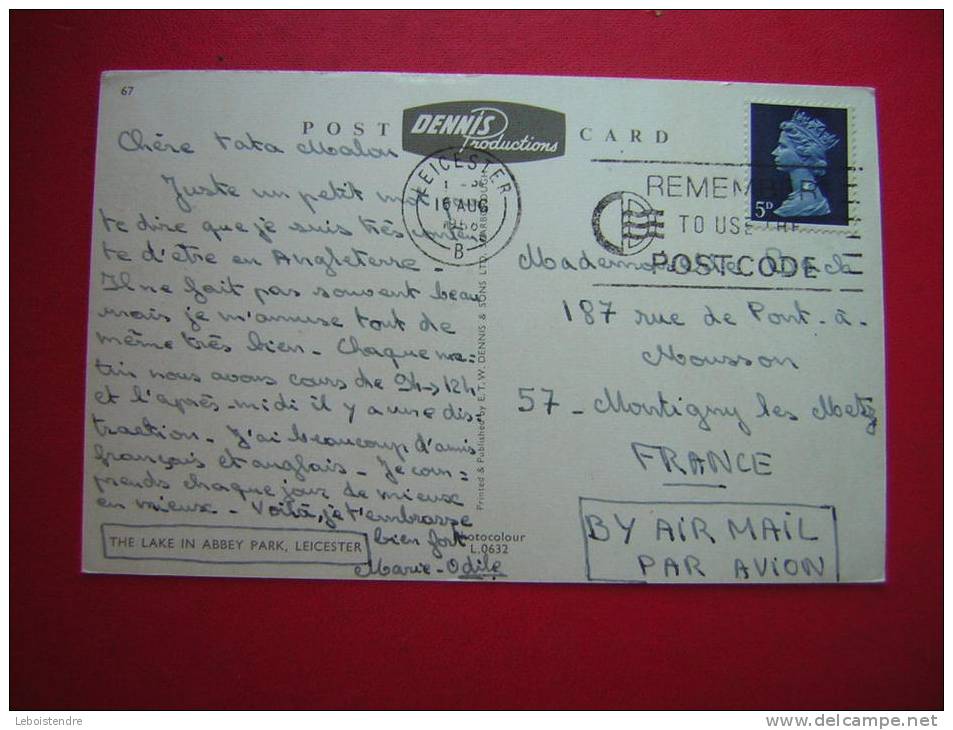 67
POST CARD
DENNIS Productions
Chère tata Malou
Juste un petit mot
te dire que je suis très conten
te d'être en Angleterre -
Il ne fait pas souvent beau
mais je m'amuse tout de
même très bien - Chaque ma=
tin nous avons cours de 9h → 12h
et l'après-midi il y a une dis=
traction - J'ai beaucoup d'amis
français et anglais - Je com=
prends chaque jour de mieux
en mieux - Voilà, je t'embrasse
bien fort
Marie-Odile
THE LAKE IN ABBEY PARK, LEICESTER
Printed & Published by E. T. W. DENNIS & SONS LTD. SCARBOROUGH
Photocolour
L.0632
LEICESTER
16 AUG
B
REMEMBER
TO USE THE
POSTCODE
5D
Mademoiselle
187 rue de Pont-à-
Mousson
57 - Montigny les Metz
FRANCE
BY AIR MAIL
PAR AVION
Leboistendre
www.delcampe.net